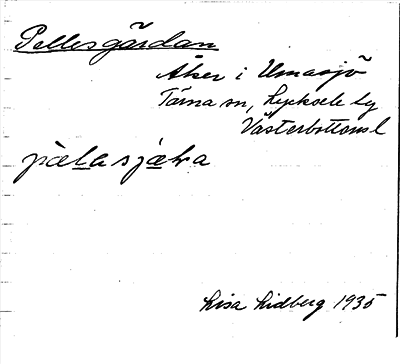 Pellesgårdan
Åker i Umasjö
Tärna sn, Lycksele lg
Västerbottens l
Lisa Lidberg 1935